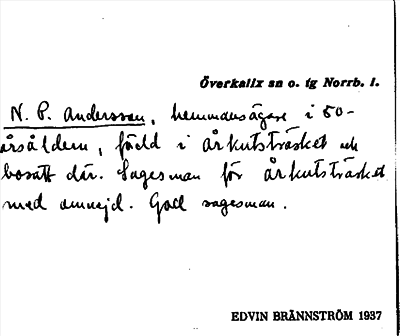 Överkalix sn o. tg Norrb. l.
N. P. Andersson, hemmansägare i 50-
årsåldern, född i Årkutsträsket och
bosatt där. Sagesman för Årkutsträsket
med omnejd. God sagesman.
EDVIN BRÄNNSTRÖM 1937